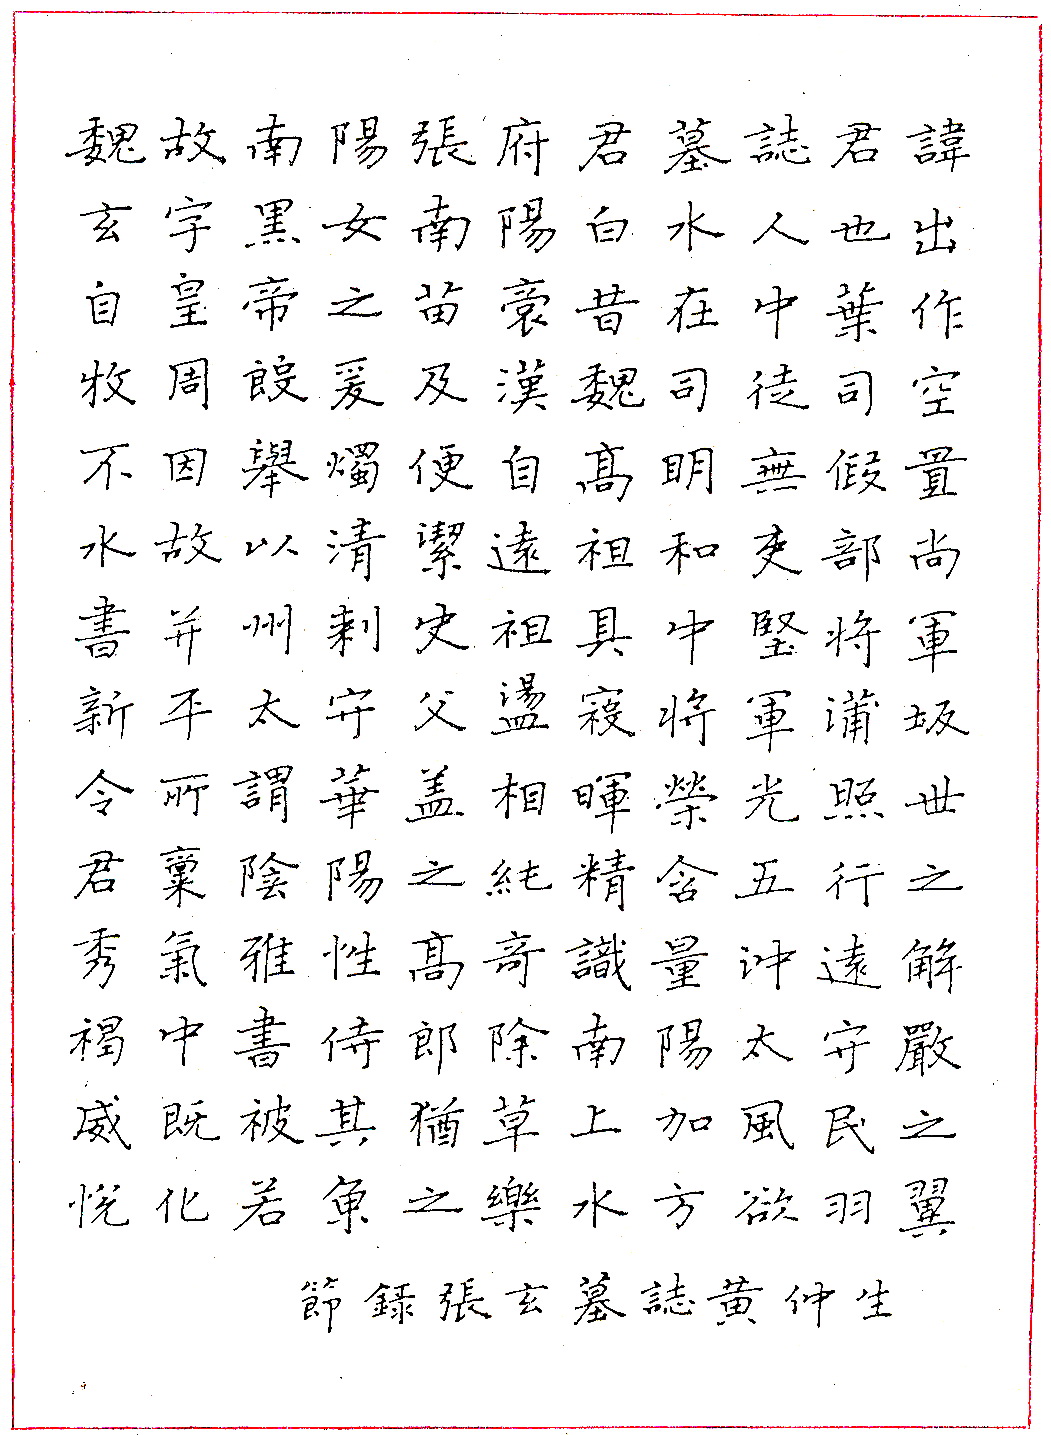 魏故南陽張府君墓誌君諱
玄字黑女南陽白水人也出
自皇帝之苗裔昔在中葉作
牧周殷爰及漢魏司徒司空
不因舉燭便自髙明無假置
水故以清潔遠祖和吏部尚
書并州刺史祖具中堅將軍
新平太守父盪寇將軍蒲坂
令所謂華盖相暉榮光照世
君稟陰陽之純精含五行之
秀氣雅性髙奇識量沖遠解
褐中書侍郎除南陽太守嚴
威既被其猶草上加風民之
悅化若魚之樂水方欲羽翼
節錄張玄墓誌黃仲生